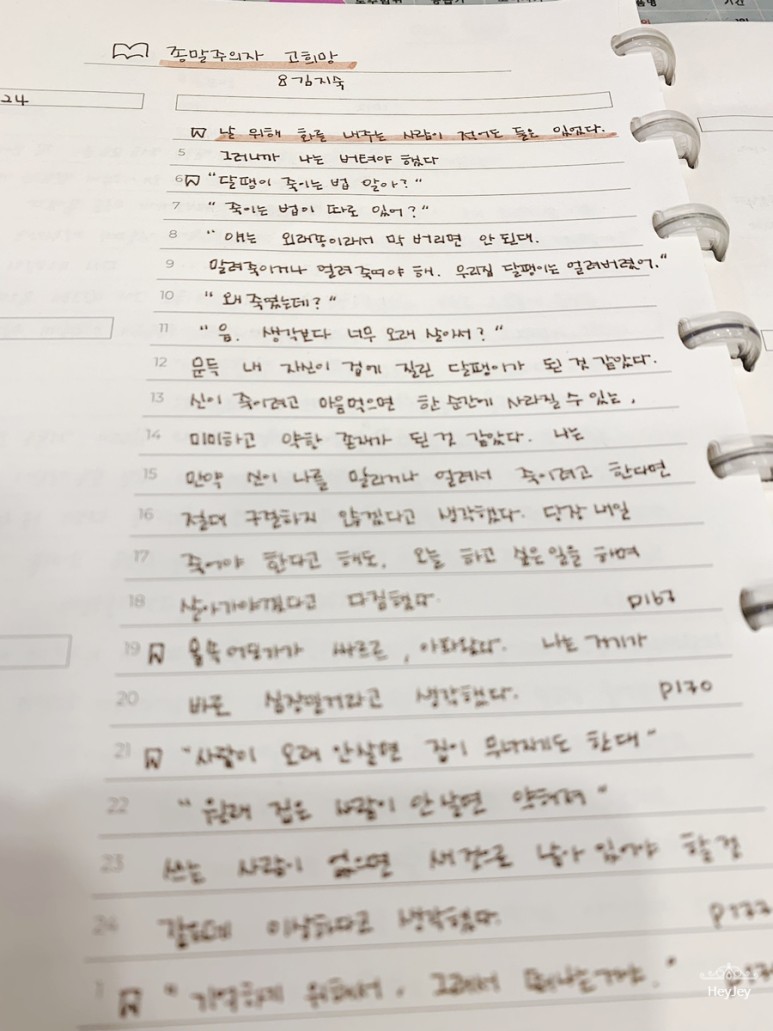 종말주의자 고희망
8 김지숙
24
날 위해 화를 내주는 사람이 적어도 둘은 있었다.
5 그러니까 나는 버텨야 했다
6 "달팽이 죽이는 법 알아?"
7 "죽이는 법이 따로 있어?"
8 "얘는 외래종이라서 막 버리면 안 된대.
9 말려죽이거나 얼려죽여야 해. 우리집 달팽이는 얼려버렸어."
10 "왜 죽였는데?"
11 "음. 생각보다 너무 오래 살아서?"
12 문득 내 자신이 겁에 질린 달팽이가 된 것 같았다.
13 신이 죽이려고 마음먹으면 한 순간에 사라질 수 있는,
14 미미하고 약한 존재가 된 것 같았다. 나는
15 만약 신이 나를 말리거나 얼려서 죽이려고 한다면
16 절대 구질하지 않겠다고 생각했다. 당장 내일
17 죽어야 한다고 해도, 오늘 하고 싶은 일을 하며
18 살아가야겠다고 다짐했다. p167
19 몸속 어딘가가 싸르르, 아파왔다. 나는 거기가
20 바로 심장일거라고 생각했다. p170
21 "사람이 오래 안살면 집이 무너지기도 한대"
22 "원래 집은 사람이 안 살면 약해져"
23 쓰는 사람이 없으면 새것으로 남아 있어야 할 것
24 같은데 이상하다고 생각했다. p177
1 "기억하기 위해서, 그래서 떠나는거야."
HeyJey